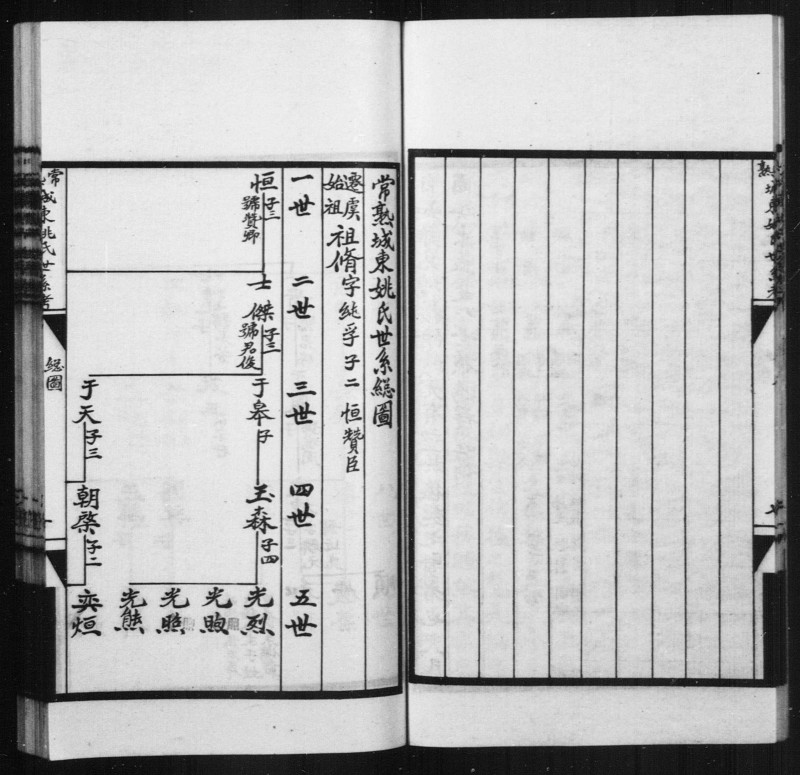 常熟城東姚氏世系緫圖
遷虞始祖 祖脩字純孚子二 恒贊臣
一世 二世 三世 四世 五世
恒 子三 號贊卿
士傑 子三 號君俊
于皋 子
玉森 子四
光烈
光煦
光照
光熊
于天 子三
朝棨 子二
奕烜
常熟城東姚氏世系考
緫圖
熟城東姚氏世系考